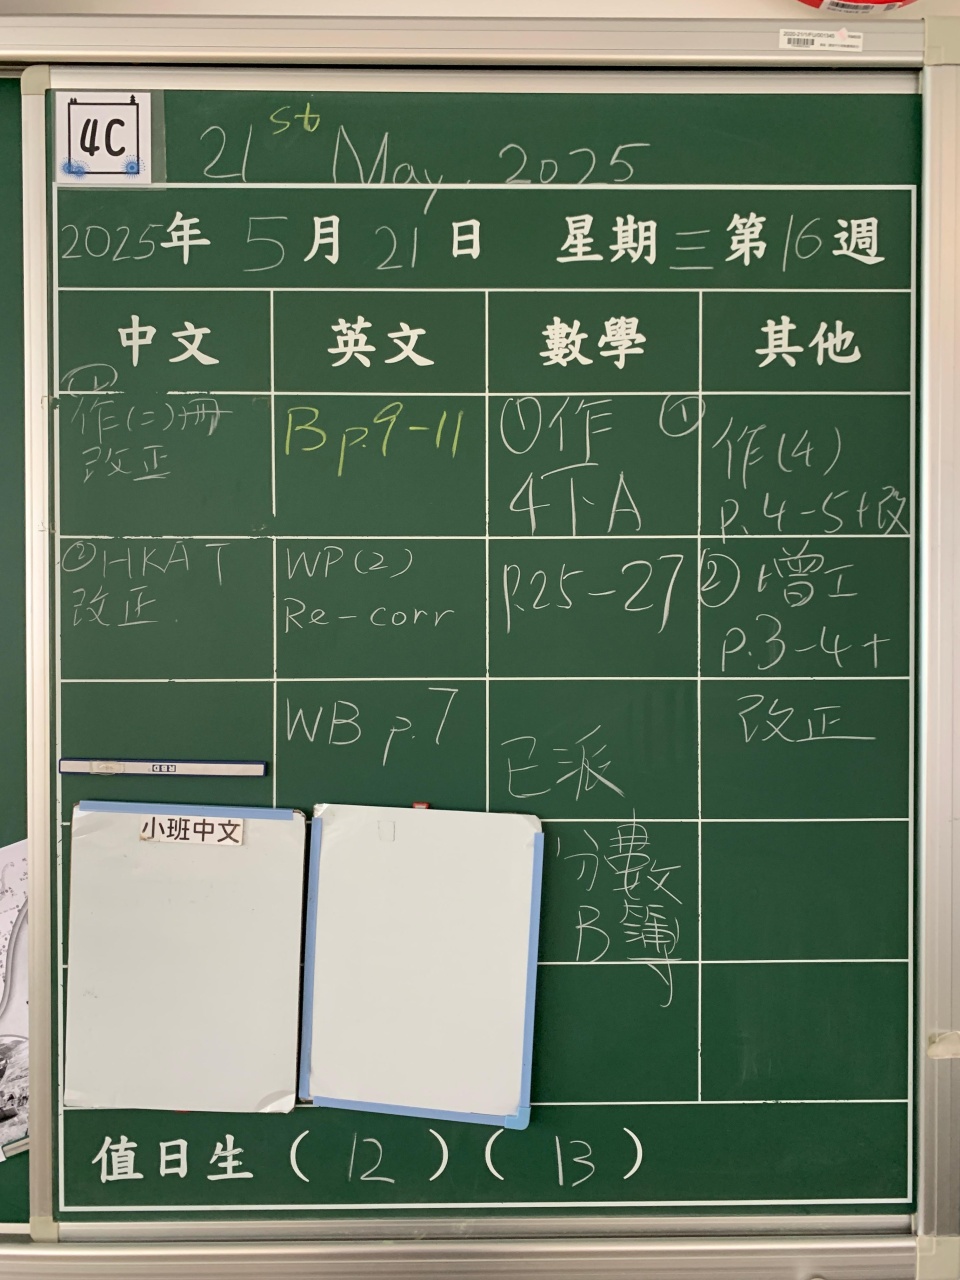 4C
21st May, 2025
2025年 5月 21日 星期三 第16週
中文
英文
數學
其他
①
作(二)冊
改正
②HKAT
改正.
B p.9-11
WP(2)
Re-corr
WB p.7
①作
4下A
p.25-27
已派
分數
B簿
①
作(4)
p.4-5+改
② 增工
p.3-4+
改正
小班中文
值日生(12)(13)